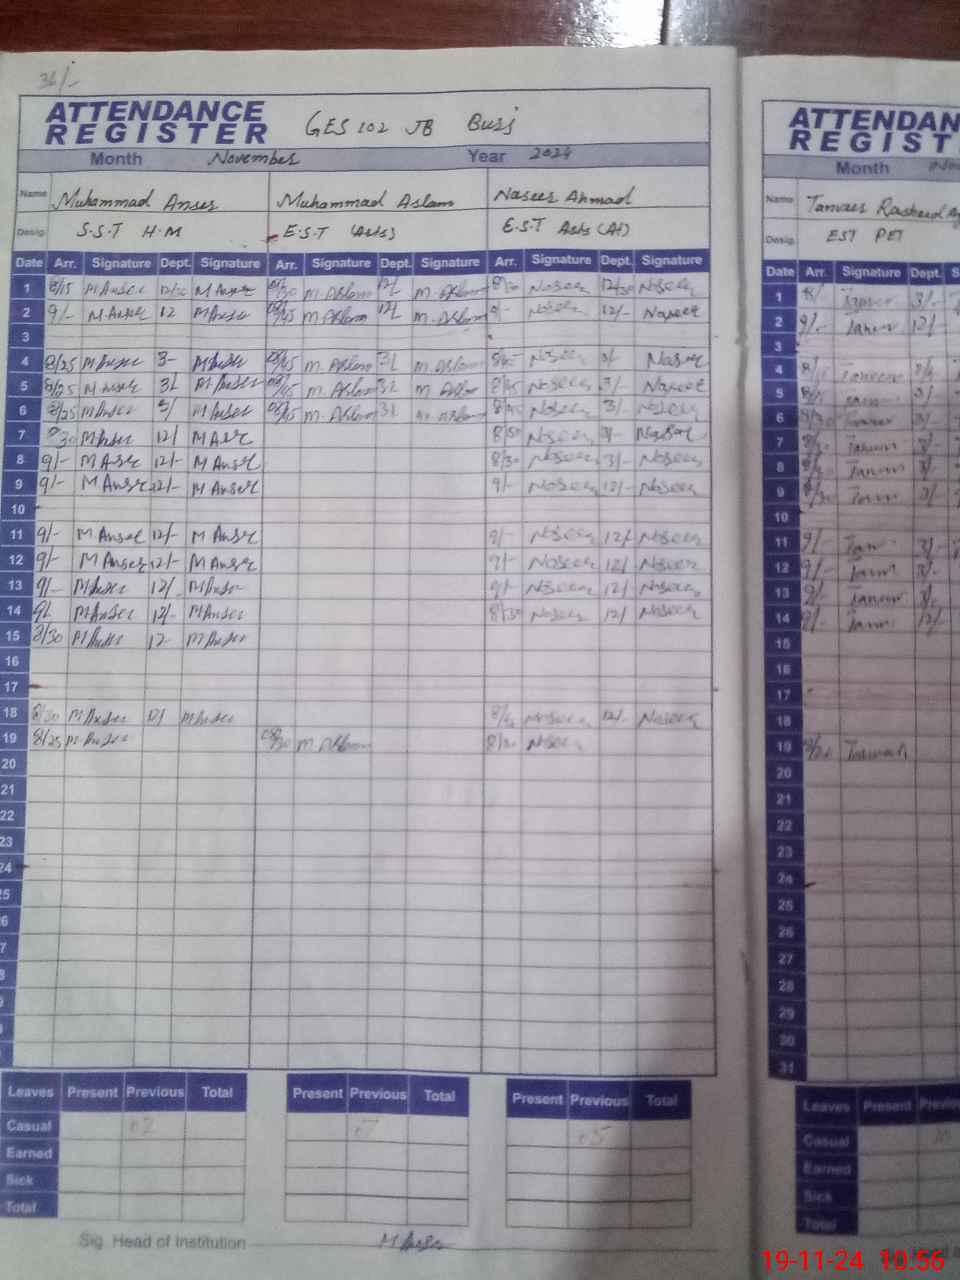 36/-
ATTENDANCE
REGISTER
GES 102 JB
Month November Year 2024
Name Muhammad Anser Muhammad Aslam Naseer Ahmad
Desig. S.S.T H.M E.S.T (Arts) E.S.T Arts (AI)
Date Arr. Signature Dept. Signature Arr. Signature Dept. Signature Arr. Signature Dept. Signature
1 8/15 M Anser 12/30 M Anser M. Aslam 12/ M. Aslam 8/30 Naseer 12/30 Naseer
2 9/- M. Anser 12 M Anser 08/45 M. Aslam 12/ M. Aslam 9/- Naseer 12/- Naseer
3
4 8/25 M Anser 3- M Anser 08/45 M. Aslam 3/ M. Aslam Naseer 3/ Naseer
5 8/25 M Anser 3/ M Anser 08/45 M. Aslam 3/ M Aslam 8/45 Naseer 3/- Naseer
6 8/25 M Anser 3/ M Anser 08/45 M. Aslam 3/ M. Aslam Naseer 3/- Naseer
7 8/30 M Anser 12/ M Anser 8/50 Naseer 3/- Naseer
8 9/- M Anser 12/- M Anser 8/30 Naseer 3/- Naseer
9 9/- M Anser 12/- M Anser 9/- Naseer 12/- Naseer
10
11 9/- M Anser 12/- M Anser 9/- Naseer 12/- Naseer
12 9/- M Anser 12/- M Anser 9/- Naseer 12/- Naseer
13 9/- M Anser 12/- M Anser 9/- Naseer 12/- Naseer
14 9/ M Anser 12/- M Anser 8/30 Naseer 12/ Naseer
15 8/30 M Anser 12- M Anser
16
17
18 8/30 M Anser 12/ M Anser 8/45 Naseer 12/- Naseer
19 8/25 M Anser 08/30 M. Aslam 8/30 Naseer
20
21
22
23
24
Leaves Present Previous Total Present Previous Total Present Previous Total
Casual 02 07 05
Earned
Sick
Total
Sig. Head of Institution M Anser
ATTENDAN
REGIST
Month
Name Tanveer Rasheed
Desig. EST PET
Date Arr. Signature Dept. S
1 8/ Tanveer 3/-
2 9/- Tanveer 12/-
3
4 Tanveer
5 Tanveer 3/
6 8/30 Tanveer 3/-
7 8/30 Tanveer 3/-
8 8/30 Tanveer 3/
9 8/30 Tanveer 3/
10
11 9/- Tanveer 3/-
12 9/- Tanveer 3/-
13 9/- Tanveer 3/
14 9/- Tanveer 12/-
15
16
17
18
19 8/30 Tanveer
20
21
22
23
24
25
26
27
28
29
30
31
Leaves Present Previous
Casual
Earned
Sick
Total
19-11-24 10:56